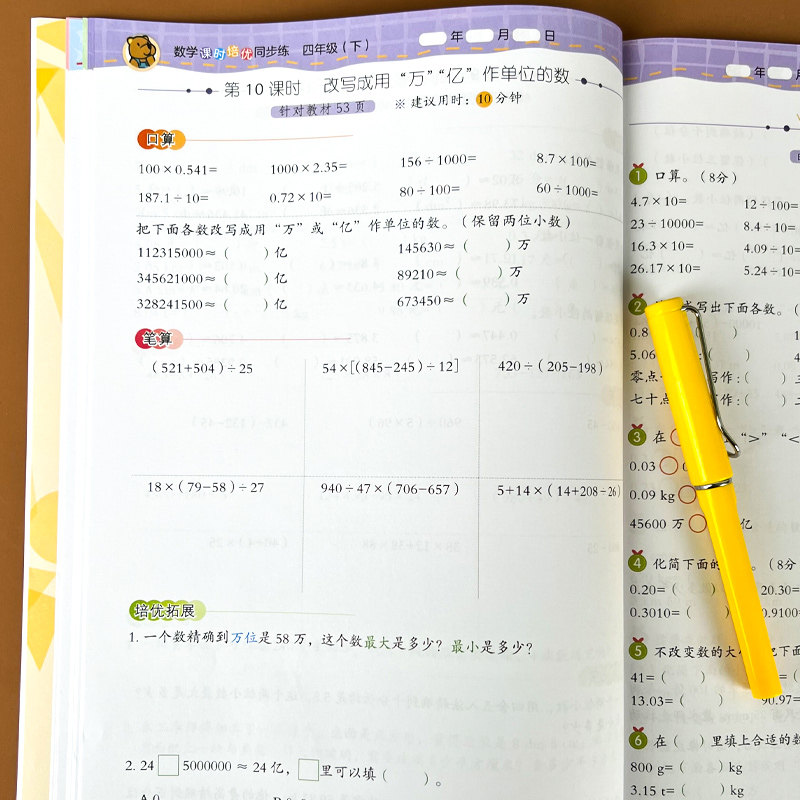 数学课时培优同步练 四年级（下）
年 月 日
第10课时 改写成用“万”“亿”作单位的数
针对教材53页 ※ 建议用时：10分钟
口算
100×0.541= 1000×2.35= 156÷1000= 8.7×100=
187.1÷10= 0.72×10= 80÷100= 60÷1000=
把下面各数改写成用“万”或“亿”作单位的数。（保留两位小数）
112315000≈（ ）亿 145630≈（ ）万
345621000≈（ ）亿 89210≈（ ）万
328241500≈（ ）亿 673450≈（ ）万
笔算
（521+504）÷25 54×[（845-245）÷12] 420÷（205-198）
18×（79-58）÷27 940÷47×（706-657） 5+14×（14+208÷26）
培优拓展
1. 一个数精确到万位是58万，这个数最大是多少？最小是多少？
2. 24□5000000≈24亿，□里可以填（ ）。
年 月
1 口算。（8分）
4.7×10= 12÷100=
23÷10000= 8.4÷10=
16.3×10= 4.09÷10
26.17×10= 5.24÷10
2 写出下面各数。（
0.8 （ ）
5.06 （ ）
零点 写作：（ ）
七十点 写作：（ ）
3 在 “>”“<
0.03
0.09 kg
45600 万 亿
4 化简下面的 。（8分
0.20=（ ） 20.30=
0.3010=（ ） 0.9100
5 不改变数的大 把下面
41=（ ）
13.03=（ ） 90.97=
6 在（ ）里填上合适的数
800 g=（ ）kg
3.15 t=（ ）kg